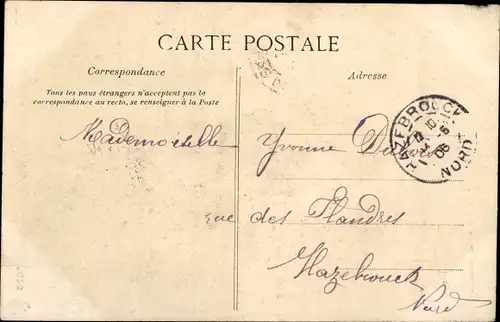 CARTE POSTALE
Correspondance
Adresse
Tous les pays étrangers n'acceptent pas la
correspondance au recto, se renseigner à la Poste
Mademoiselle
Yvonne
rue des Flandres
Hazebrouck
Nord
HAZEBROUCK
NORD